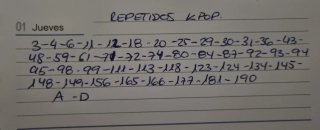 REPETIDOS KPOP.
01 Jueves
3-4-6-11-12-18-20-25-29-30-31-36-43-
48-59-61-71-72-74-80-84-87-92-93-94
95-98-99-111-113-118-123-124-134-145-
148-149-156-165-166-177-181-190
A-D